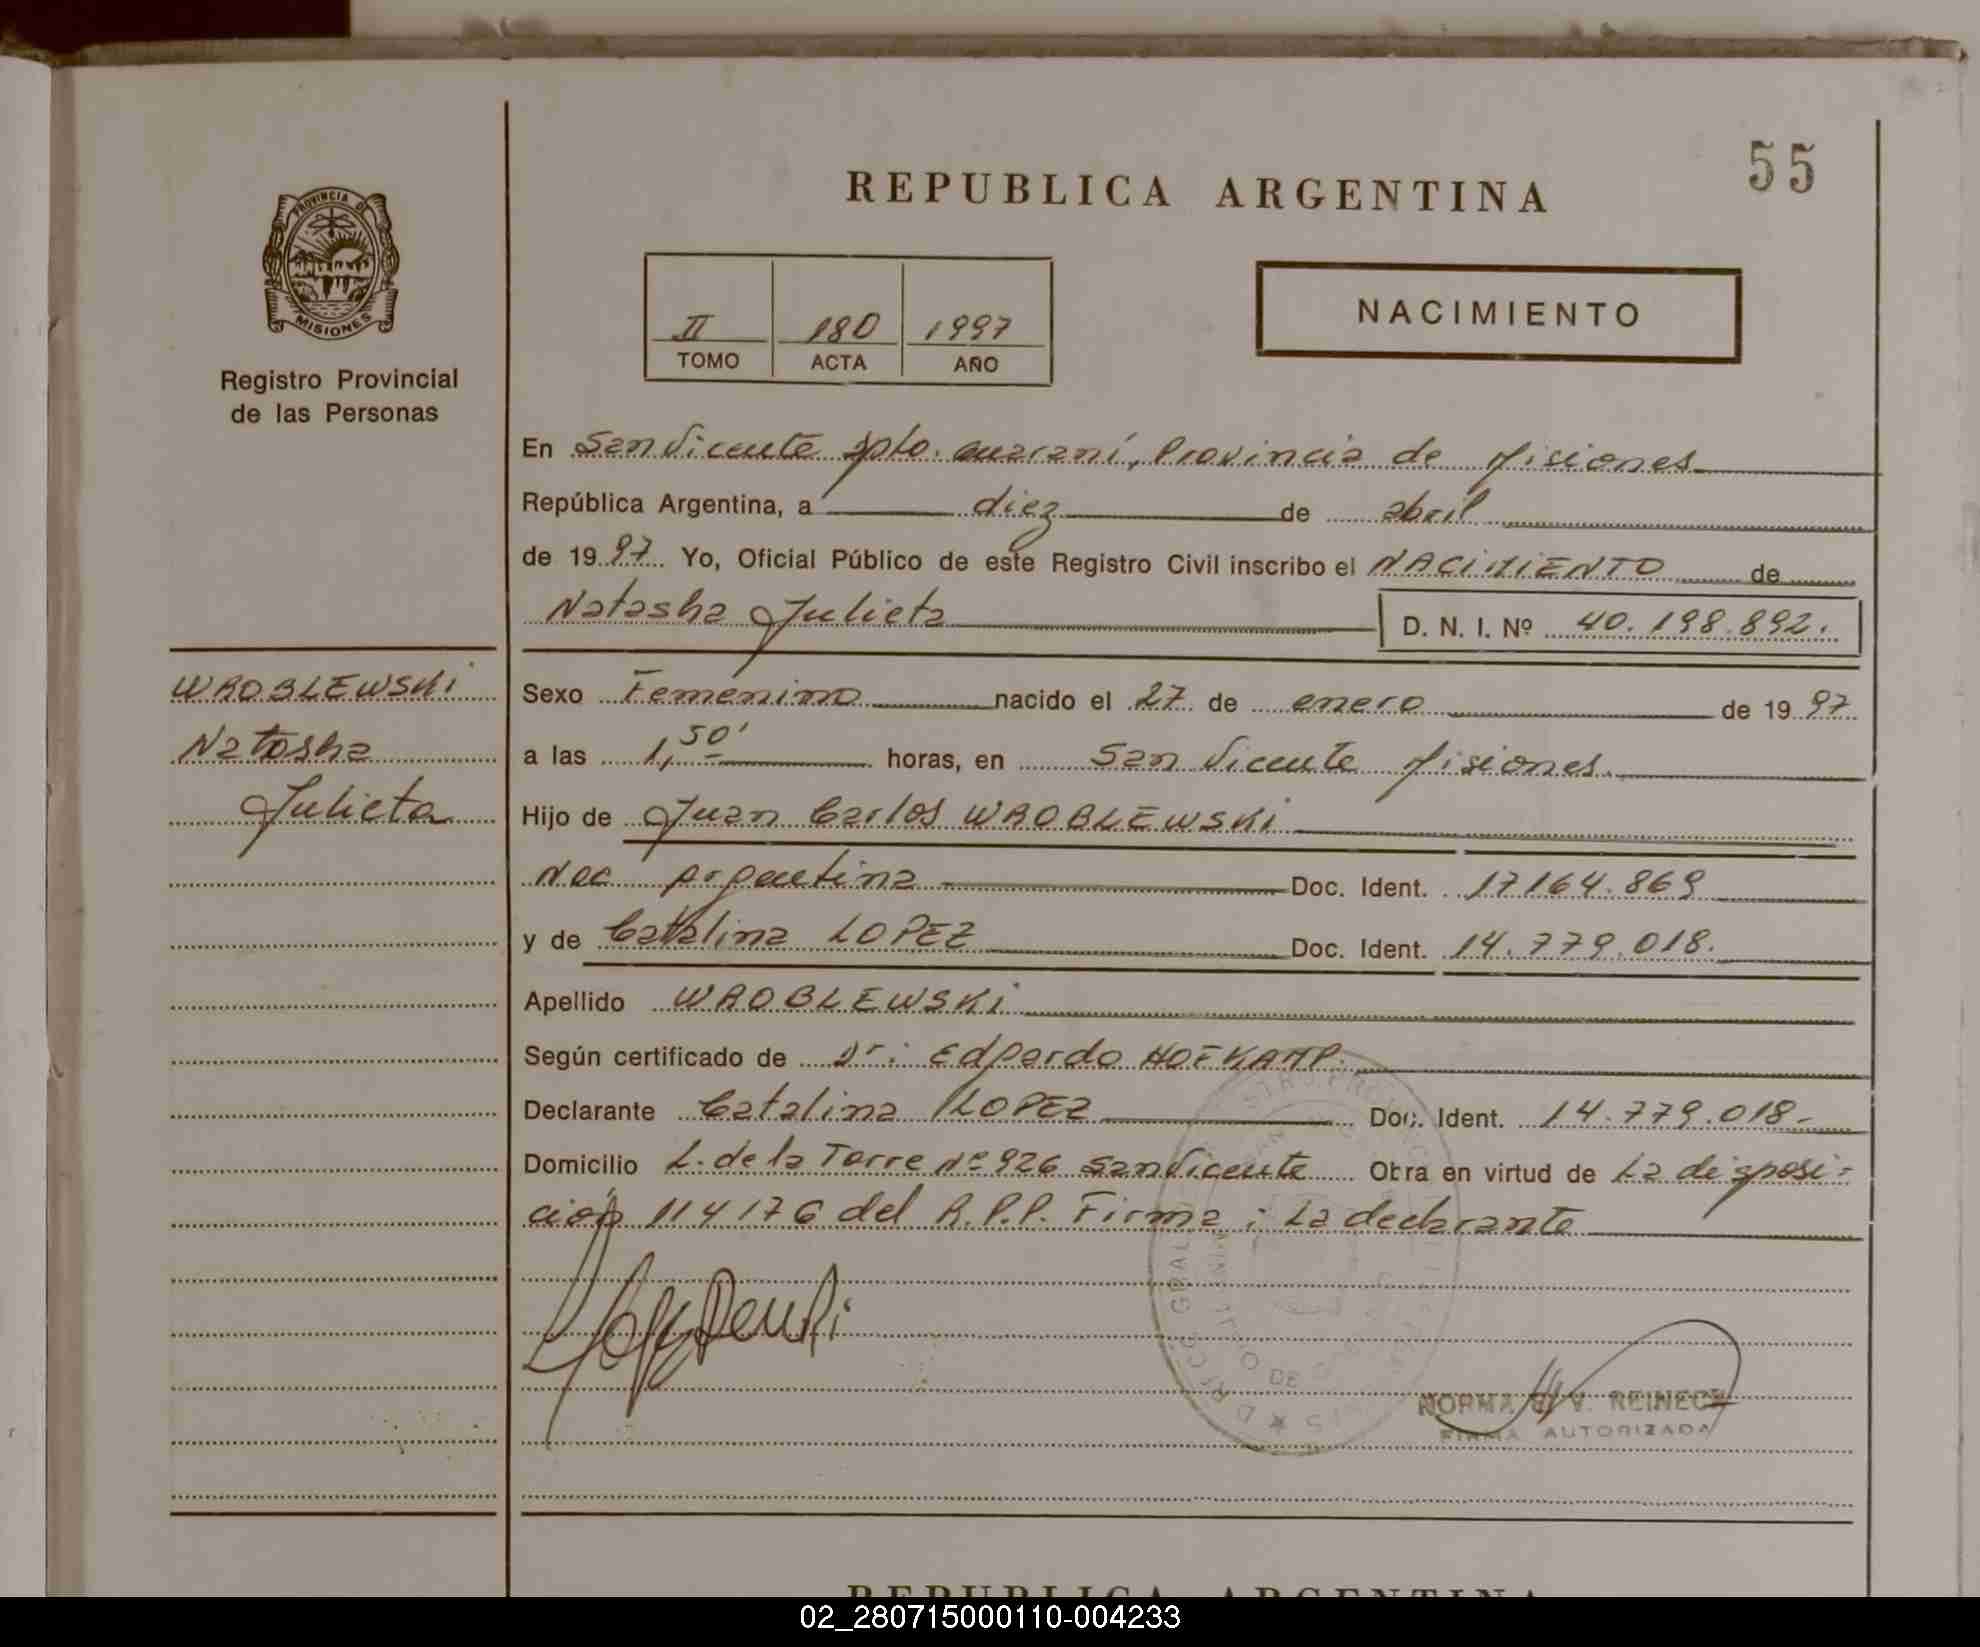 55
REPUBLICA ARGENTINA
PROVINCIA DE
MISIONES
Registro Provincial
de las Personas
II 180 1997
TOMO ACTA AÑO
NACIMIENTO
En San Vicente Dpto. Guaraní, Provincia de Misiones
República Argentina, a diez de abril
de 1997. Yo, Oficial Público de este Registro Civil inscribo el NACIMIENTO de
Natasha Julieta D. N. I. Nº 40.198.892.
WROBLEWSKi
Natasha
Julieta
Sexo Femenino nacido el 27 de enero de 1997
a las 1,50' horas, en San Vicente Misiones.
Hijo de Juan Carlos WROBLEWSKi
Nac Argentina Doc. Ident. 17164.869
y de Catalina LOPEZ Doc. Ident. 14.779.018.
Apellido WROBLEWSKi
Según certificado de Dr: Edgardo HOFKAMP.
Declarante Catalina LOPEZ Doc. Ident. 14.779.018-
Domicilio L. de la Torre Nº 926 San Vicente Obra en virtud de La disposi-
ción 114176 del R.P.P. Firma: La declarante
NORMA V. REINECK
FIRMA AUTORIZADA
REPUBLICA ARGENTINA
02_280715000110-004233